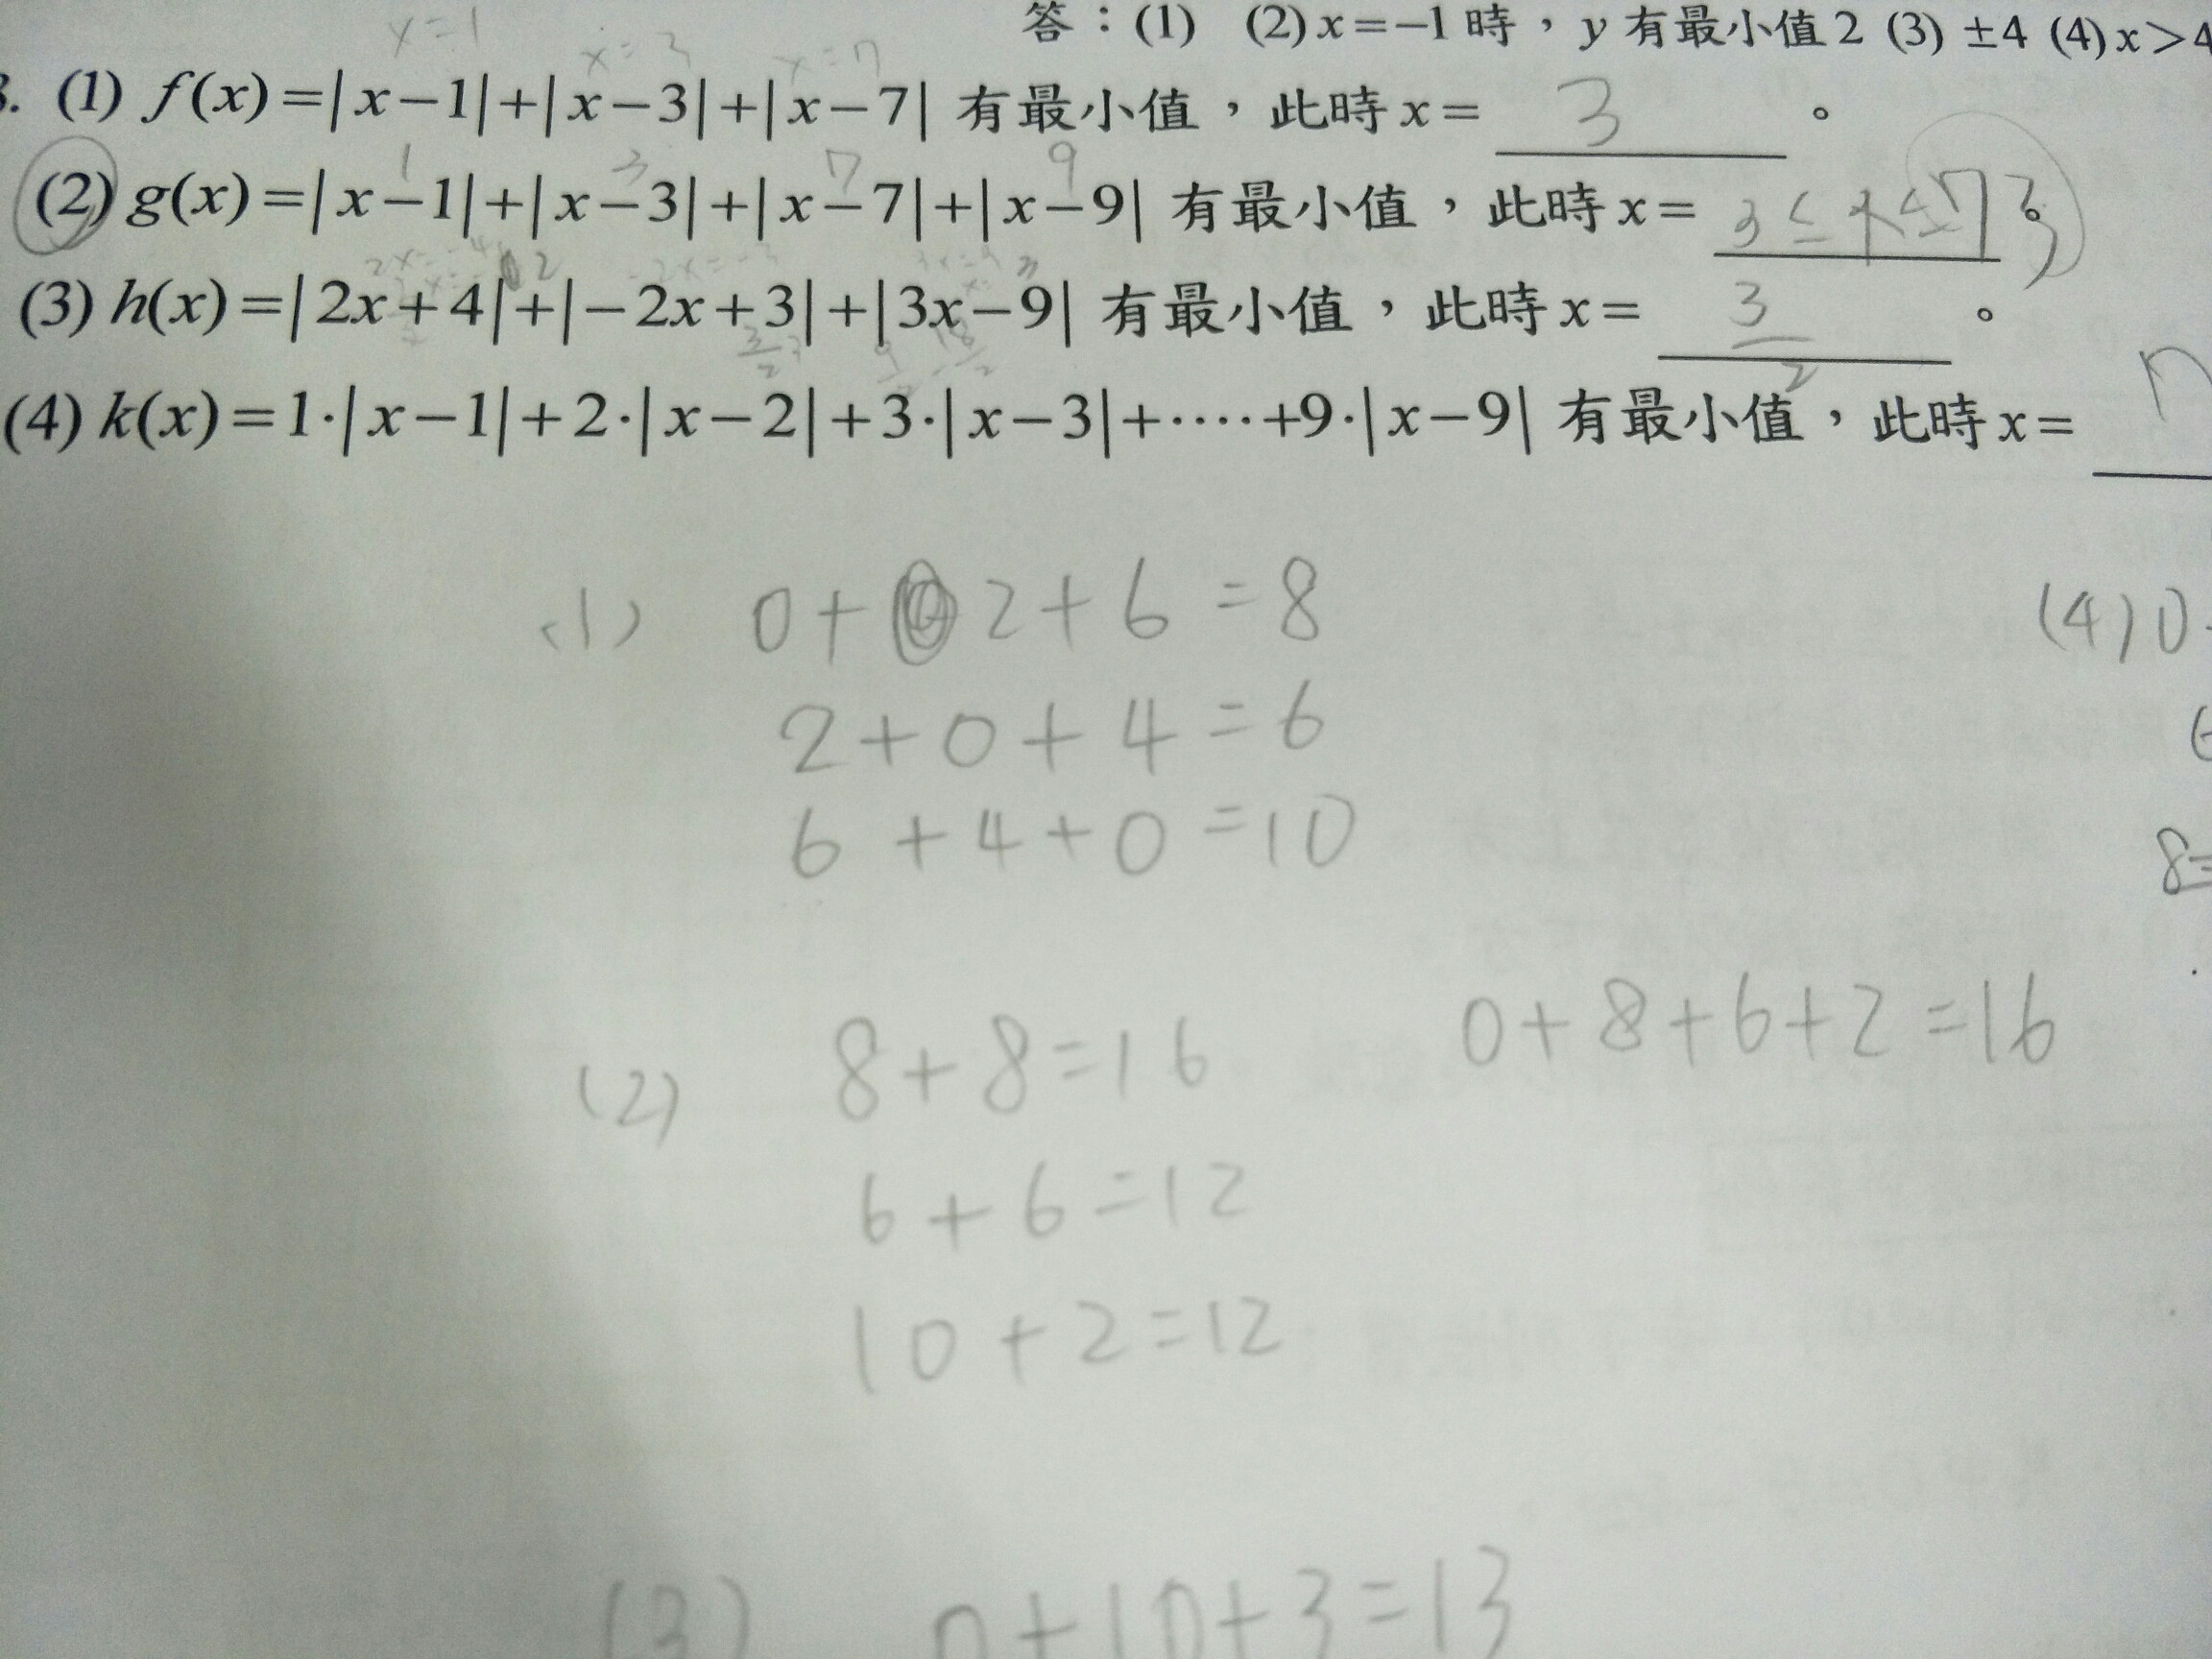 答：(1) (2) x=−1 時，y 有最小值 2 (3) ±4 (4) x>4
x=1 x=3 x=7
3. (1) f(x)=|x−1|+|x−3|+|x−7| 有最小值，此時 x= 3 。
1 3 7 9
(2) g(x)=|x−1|+|x−3|+|x−7|+|x−9| 有最小值，此時 x= 3≤x≤7 3
(3) h(x)=|2x+4|+|−2x+3|+|3x−9| 有最小值，此時 x= 3/2 。
(4) k(x)=1·|x−1|+2·|x−2|+3·|x−3|+····+9·|x−9| 有最小值，此時 x=
(1) 0+2+6=8
(4) 0
2+0+4=6
6+4+0=10
8=
(2) 8+8=16
0+8+6+2=16
6+6=12
10+2=12
(3) 0+10+3=13